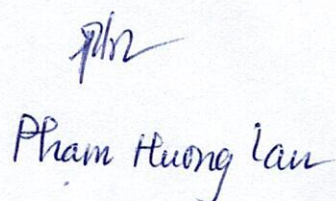 Pham Huong Lan